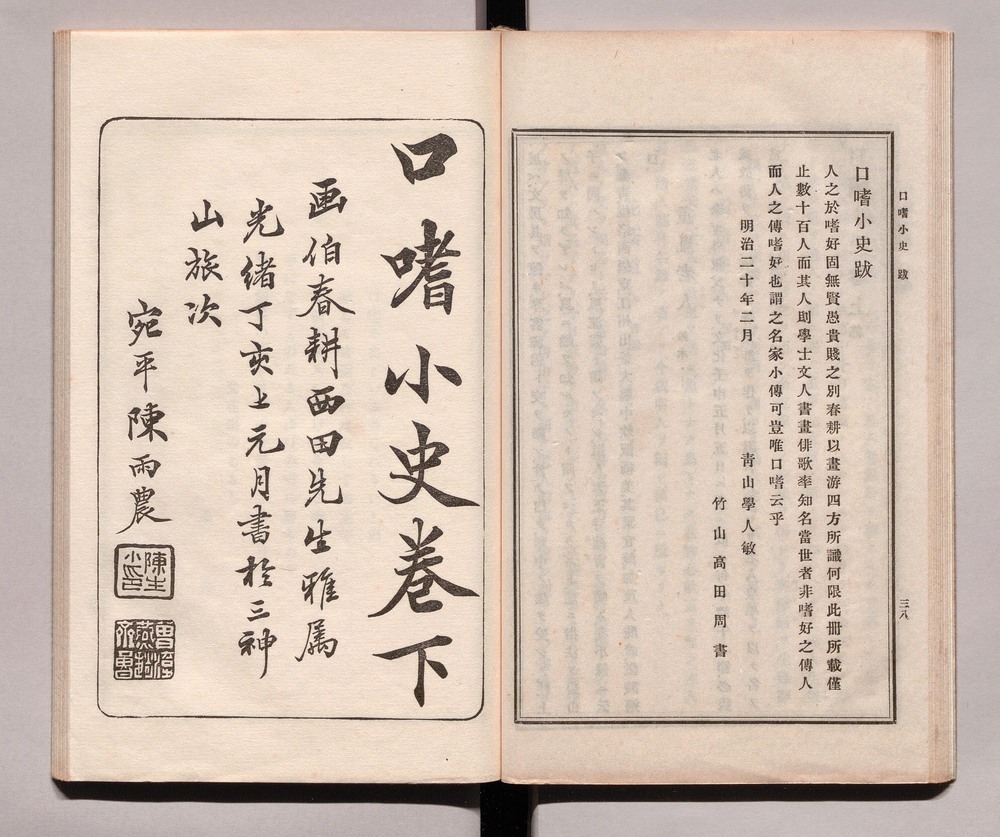 口嗜小史 跋
三八
口嗜小史跋
人之於嗜好固無賢愚貴賤之別春耕以畫游四方所識何限此冊所載僅
止數十百人而其人則學士文人書畫俳歌率知名當世者非嗜好之傳人
而人之傳嗜好也謂之名家小傳可豈唯口嗜云乎
明治二十年二月
靑山學人敏
竹山高田周書
口嗜小史巻下
画伯春耕西田先生雅属
光緒丁亥上元月書於三神
山旅次
宛平陳雨農